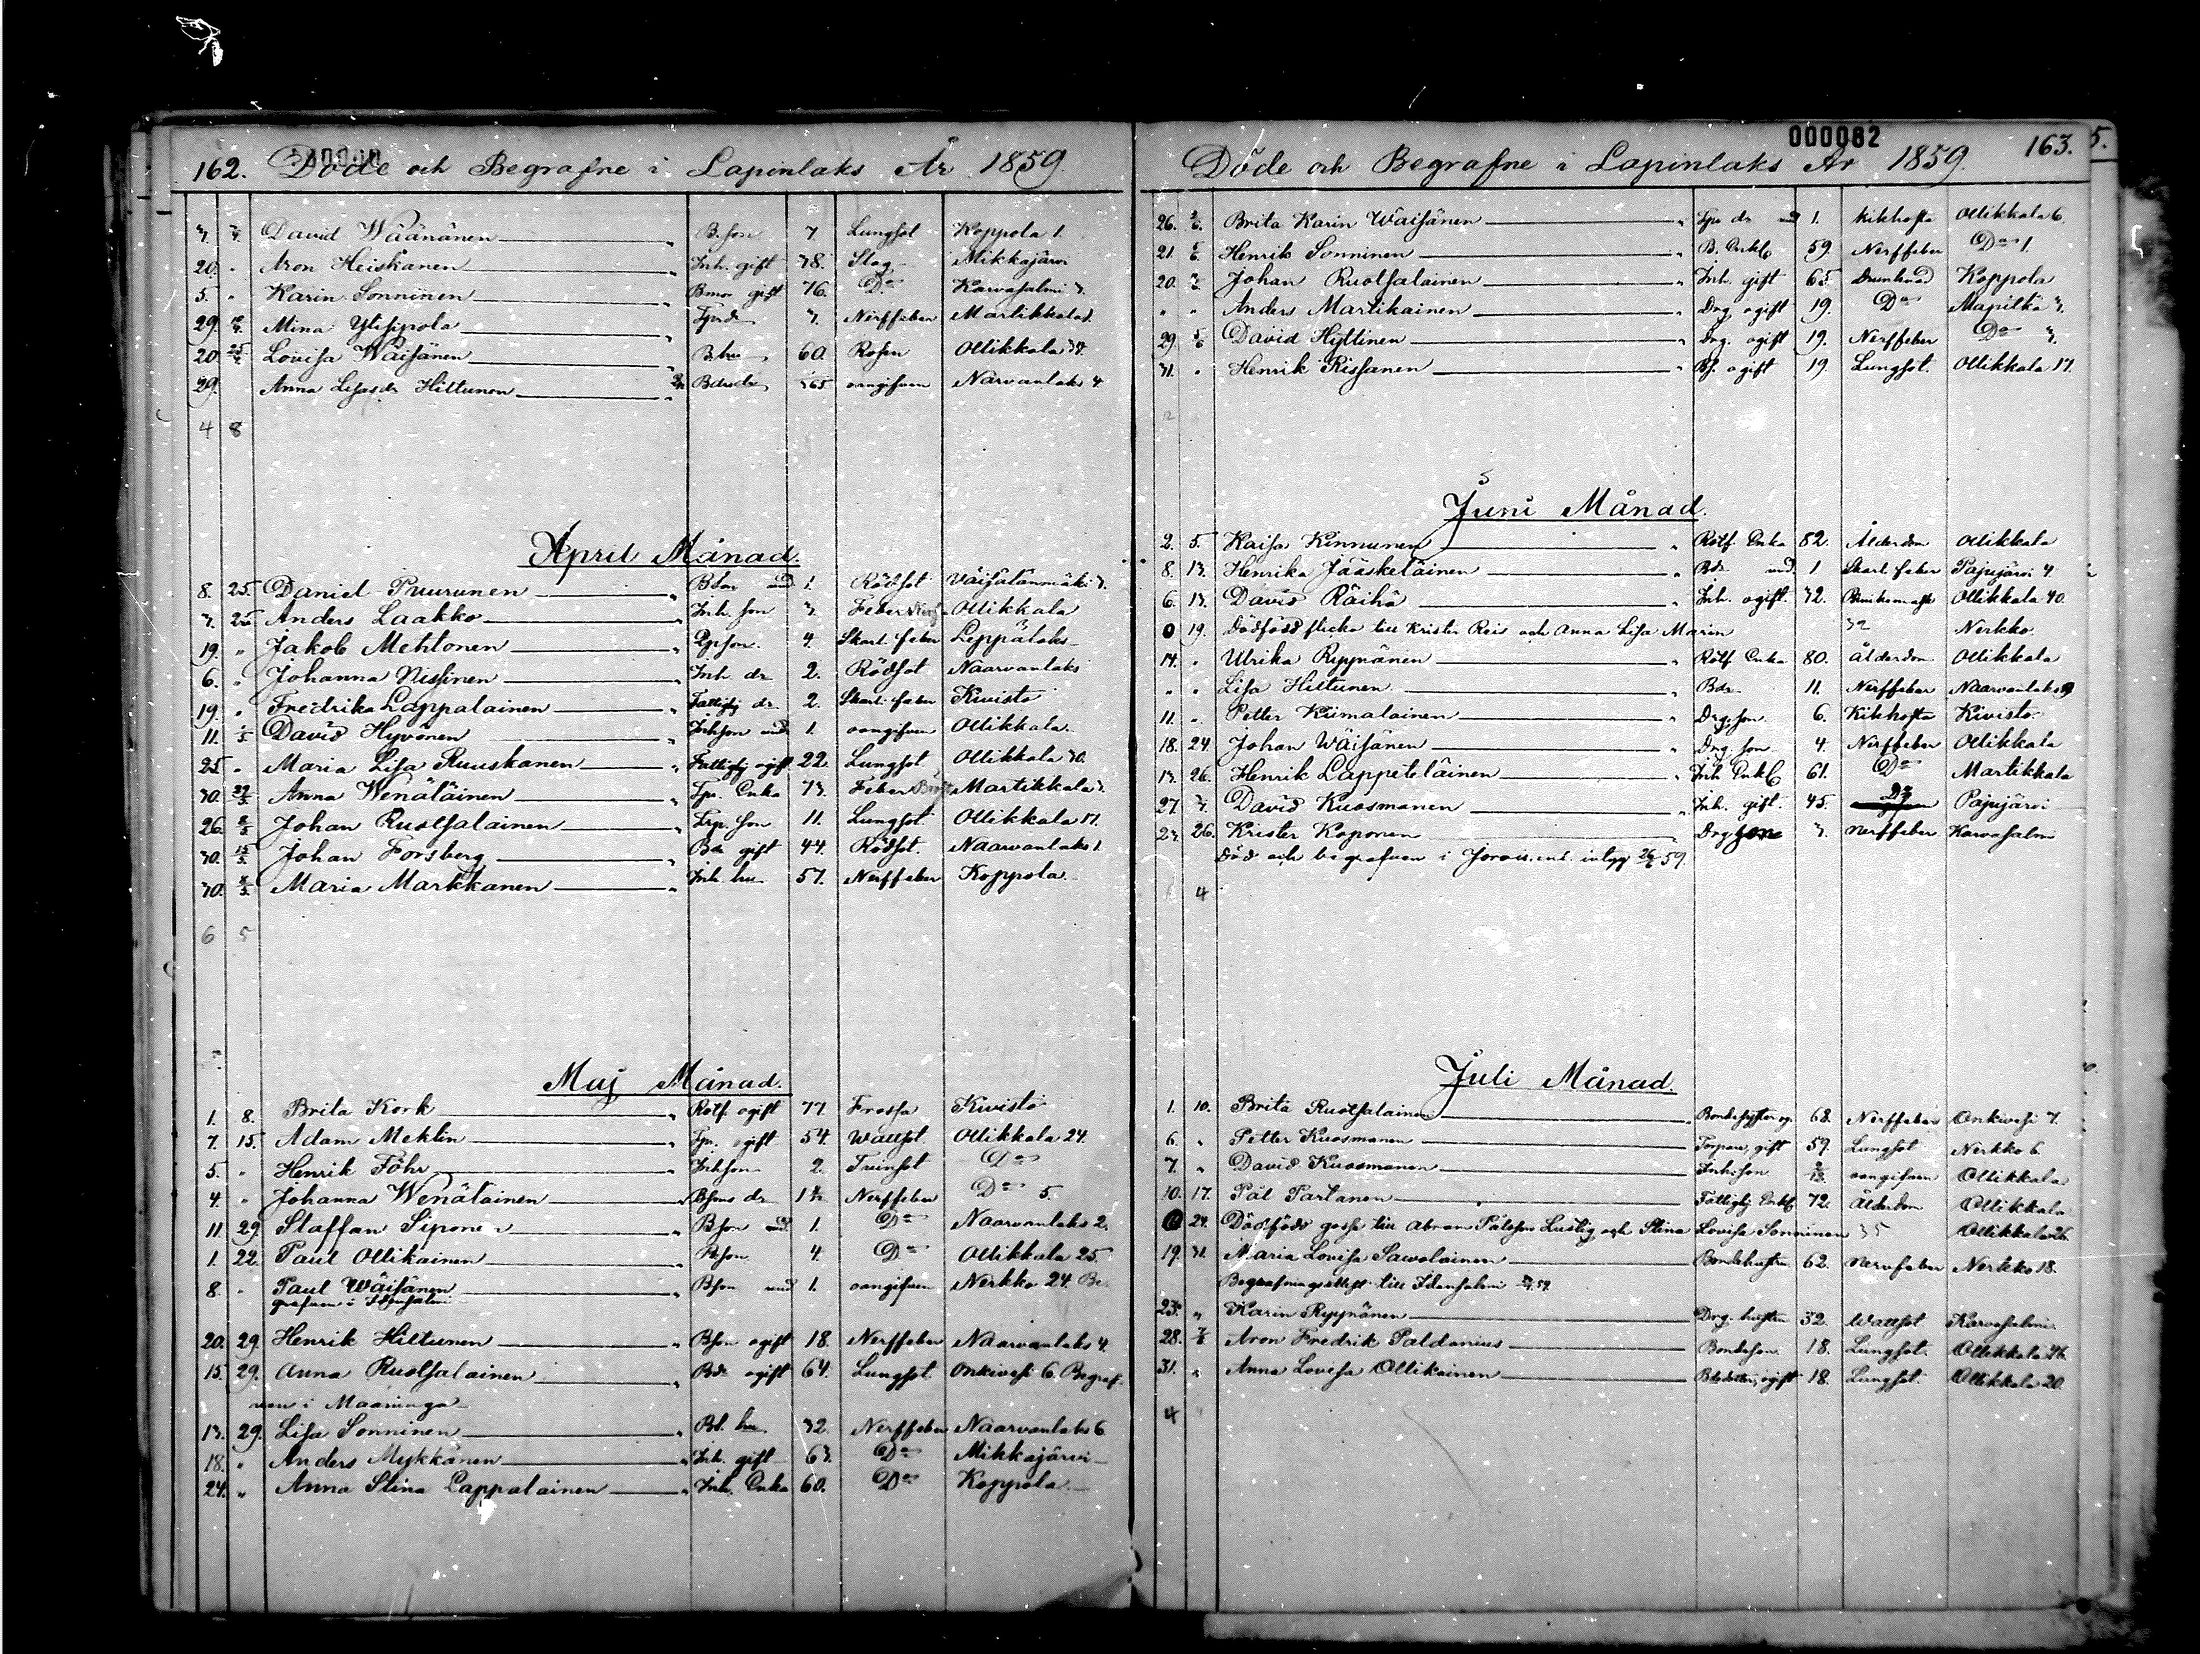 162. Döde och Begrafne i Lapinlaks År 1859.
3. 3/4 David Wäänänen B.son 7. Lungsot Koppola 1.
20. " Aron Heiskanen Inh. gift 38. Slag Mikkajärvi
5. " Karin Sonninen Bmor gift 76. Do Karvasalmi 3.
29. Mina Ylisipola 3. Nerffeber Martikkala
20. 25/4 Lovisa Wäisänen B.hu 60. Rosen Ollikkala
29. Anna Lisasdr Hiltunen oangifven Narvanlaks 4
4 8
April Månad.
8. 25. Daniel Puurunen BSon und. 1. Rödsot Väisälänmäki 3.
3. 25 Anders Laakko Inh. son 3. Feber Ollikkala
19. " Jakob Mehtonen son. 4. Skarl. feber Leppälaks
6. " Johanna Nissinen Inh dr 2. Rödsot Naarvanlaks
19. " Fredrika Lappalainen Fattighj dr. 2. Skarl. feber Kivistö
11. 1/5 David Hyvönen Inhson und. 1. oangifven Ollikkala
25. " Maria Lisa Ruuskanen Fattighj ogift 22. Lungsot Ollikkala 30.
30. Anna Wenäläinen Enka 73. Feber Martikkala 3.
26. 8/5 Johan Ruotsalainen Trp. son 11. Lungsot Ollikkala 17.
30. 15/5 Johan Forsberg Bde gift 44. Rödsot. Naarvanlaks 1.
30. 8/5 Maria Markkanen Inh. hu 57. Nerffeber Koppola
6 5
Maj Månad.
1. 8. Brita Kork Rotf. ogift 77. Frossa Kivistö
7. 15. Adam Meklin ogift 54. Wattsot. Ollikkala 24.
5. " Henrik Föhr Inhson 2. Tvinsot Do
4. " Johanna Wenäläinen Bsons dr. Nerffeber Do 5.
11. 29. Staffan Siponen BSon und. 1. Do Naarvanlaks 2.
1. 22. Paul Ollikainen Bson 4. Do Ollikkala 25.
8. " Paul Wäisänen Bson und 1. oangifven Nerkko 24. Be-
grafven i Idensalmi
20. 29. Henrik Hiltunen Bson ogift 18. Nerffeber Naarvanlaks 4.
15. 29. Anna Ruotsalainen Bde ogift 64. Lungsot Onkivesi 6. Begraf-
ven i Maaninga
13. 29. Lisa Sonninen Bd. hu. 32. Nerffeber Naarvanlaks 6
18. " Anders Mykkänen Inh. gift 63. Do Mikkajärvi
24. " Anna Stina Lappalainen Inh. Enka 60. Do Koppola
000082
163.
5.
Döde och Begrafne i Lapinlaks År 1859.
26. Brita Karin Wäisänen dr und 1. Kikhosta Ollikkala 6.
21. Henrik Sonninen B. Enkl 59. Nerffeber Do 1.
20. Johan Ruotsalainen Inh. gift 65. Drunknad Koppola
" " Anders Martikainen Drg ogift 19. Do Mapitkä 3.
29. 5/6 David Hyttinen Drg. ogift 19. Nerffeber Do 3.
31. " Henrik Rissanen Bs. ogift 19. Lungsot. Ollikkala 17.
Juni Månad.
2. 5. Kaisa Kinnunen Rotf. Enka 82. Ålderdom Ollikkala
8. 13. Henrika Jääskeläinen Bdr. und. 1 Skarl. feber Pajujärvi 4.
6. 13. David Räihä Inh. ogift. 32. Ollikkala 40.
19. Dödfödd flicka till Krister Reis och Anna Lisa Marin 32 Nerkko.
14. " Ulrika Ryynänen Rotf. Enka 80. Ålderdom Ollikkala
" " Lisa Hiltunen Bdr 11. Nerffeber Naarvanlaks 9
11. " Petter Kumalainen Drg.son 6. Kikhosta Kivistö
18. 24. Johan Wäisänen Drg. son 4. Nerffeber Ollikkala
13. 26. Henrik Lappeteläinen Inh Enkl 61. Do Martikkala
27. David Kuosmanen Inh. gift. 45. Pajujärvi
23. 26. Krister Koponen Drgson 3. Nerffeber Karvasalmi
död och begrafven i Jorois, enl. intyg 59.
4
Juli Månad.
1. 10. Brita Ruotsalainen 68. Nerffeber Onkivesi 7.
6. " Petter Kuosmanen Torpare, gift 59. Lungsot Nerkko 6.
7. " David Kuosmanen Inh.son oangifven Ollikkala
10. 17. Pål Partanen Fattighj Enkl 72. Ålderdom Ollikkala
24. Dödfödd gosse till Abram Pålsson Lustig och Stina Lovisa Sonninen 35 Ollikkala 26.
19. 31. Maria Lovisa Savolainen Bondehustru 62. Nervfeber Nerkko 18.
Begrafningsattest till Idensalmi 59.
23. " Karin Ryynänen Drg. hustru 52. Wattsot Karvasalmi
28. 7/8 Aron Fredrik Paldanius Bondeson 18. Lungsot. Ollikkala 26.
31. " Anna Lovisa Ollikainen ogift 18. Lungsot. Ollikkala 20.
4